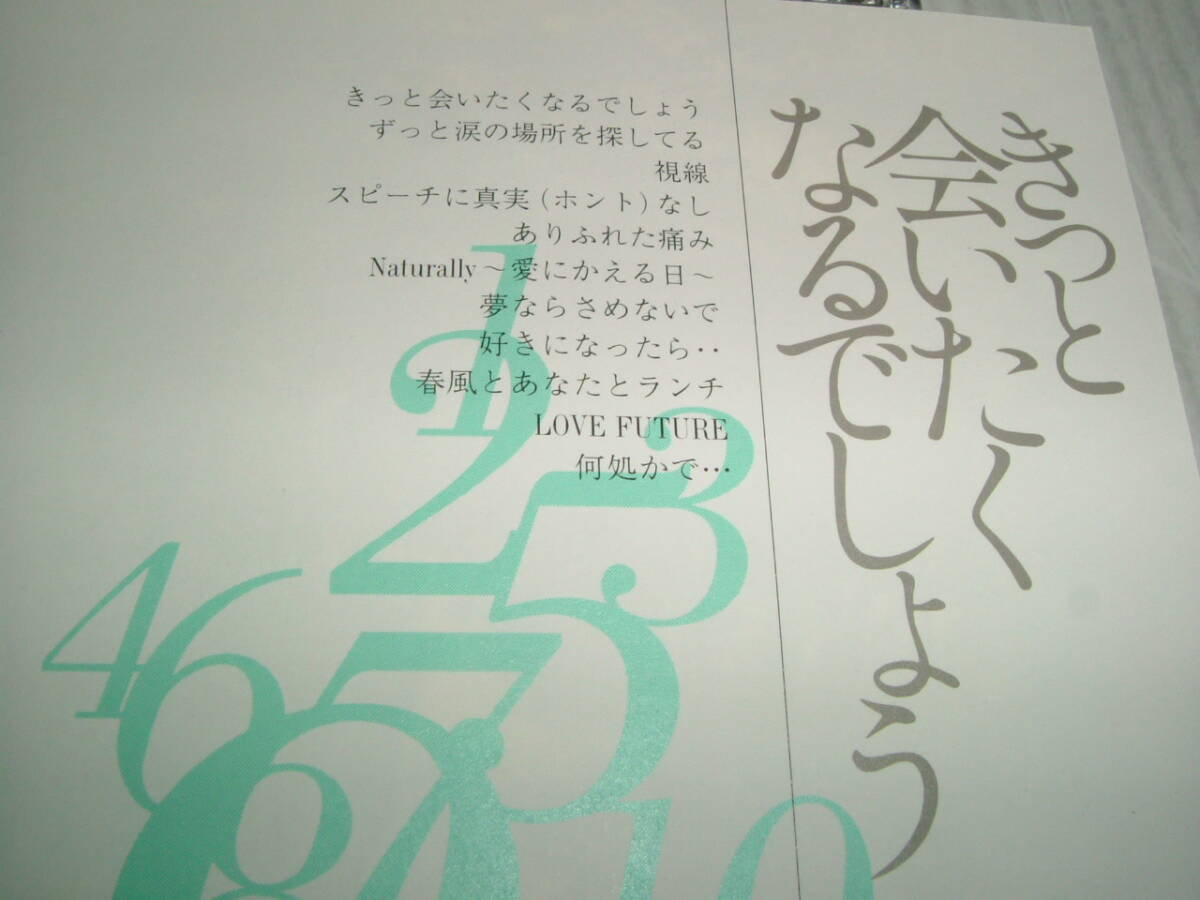 きっと会いたくなるでしょう
ずっと涙の場所を探してる
視線
スピーチに真実(ホント)なし
ありふれた痛み
Naturally～愛にかえる日～
夢ならさめないで
好きになったら‥
春風とあなたとランチ
LOVE FUTURE
何処かで…
きっと
会いたく
なるでしょう
1
2
3
4
5
6
7
8
10